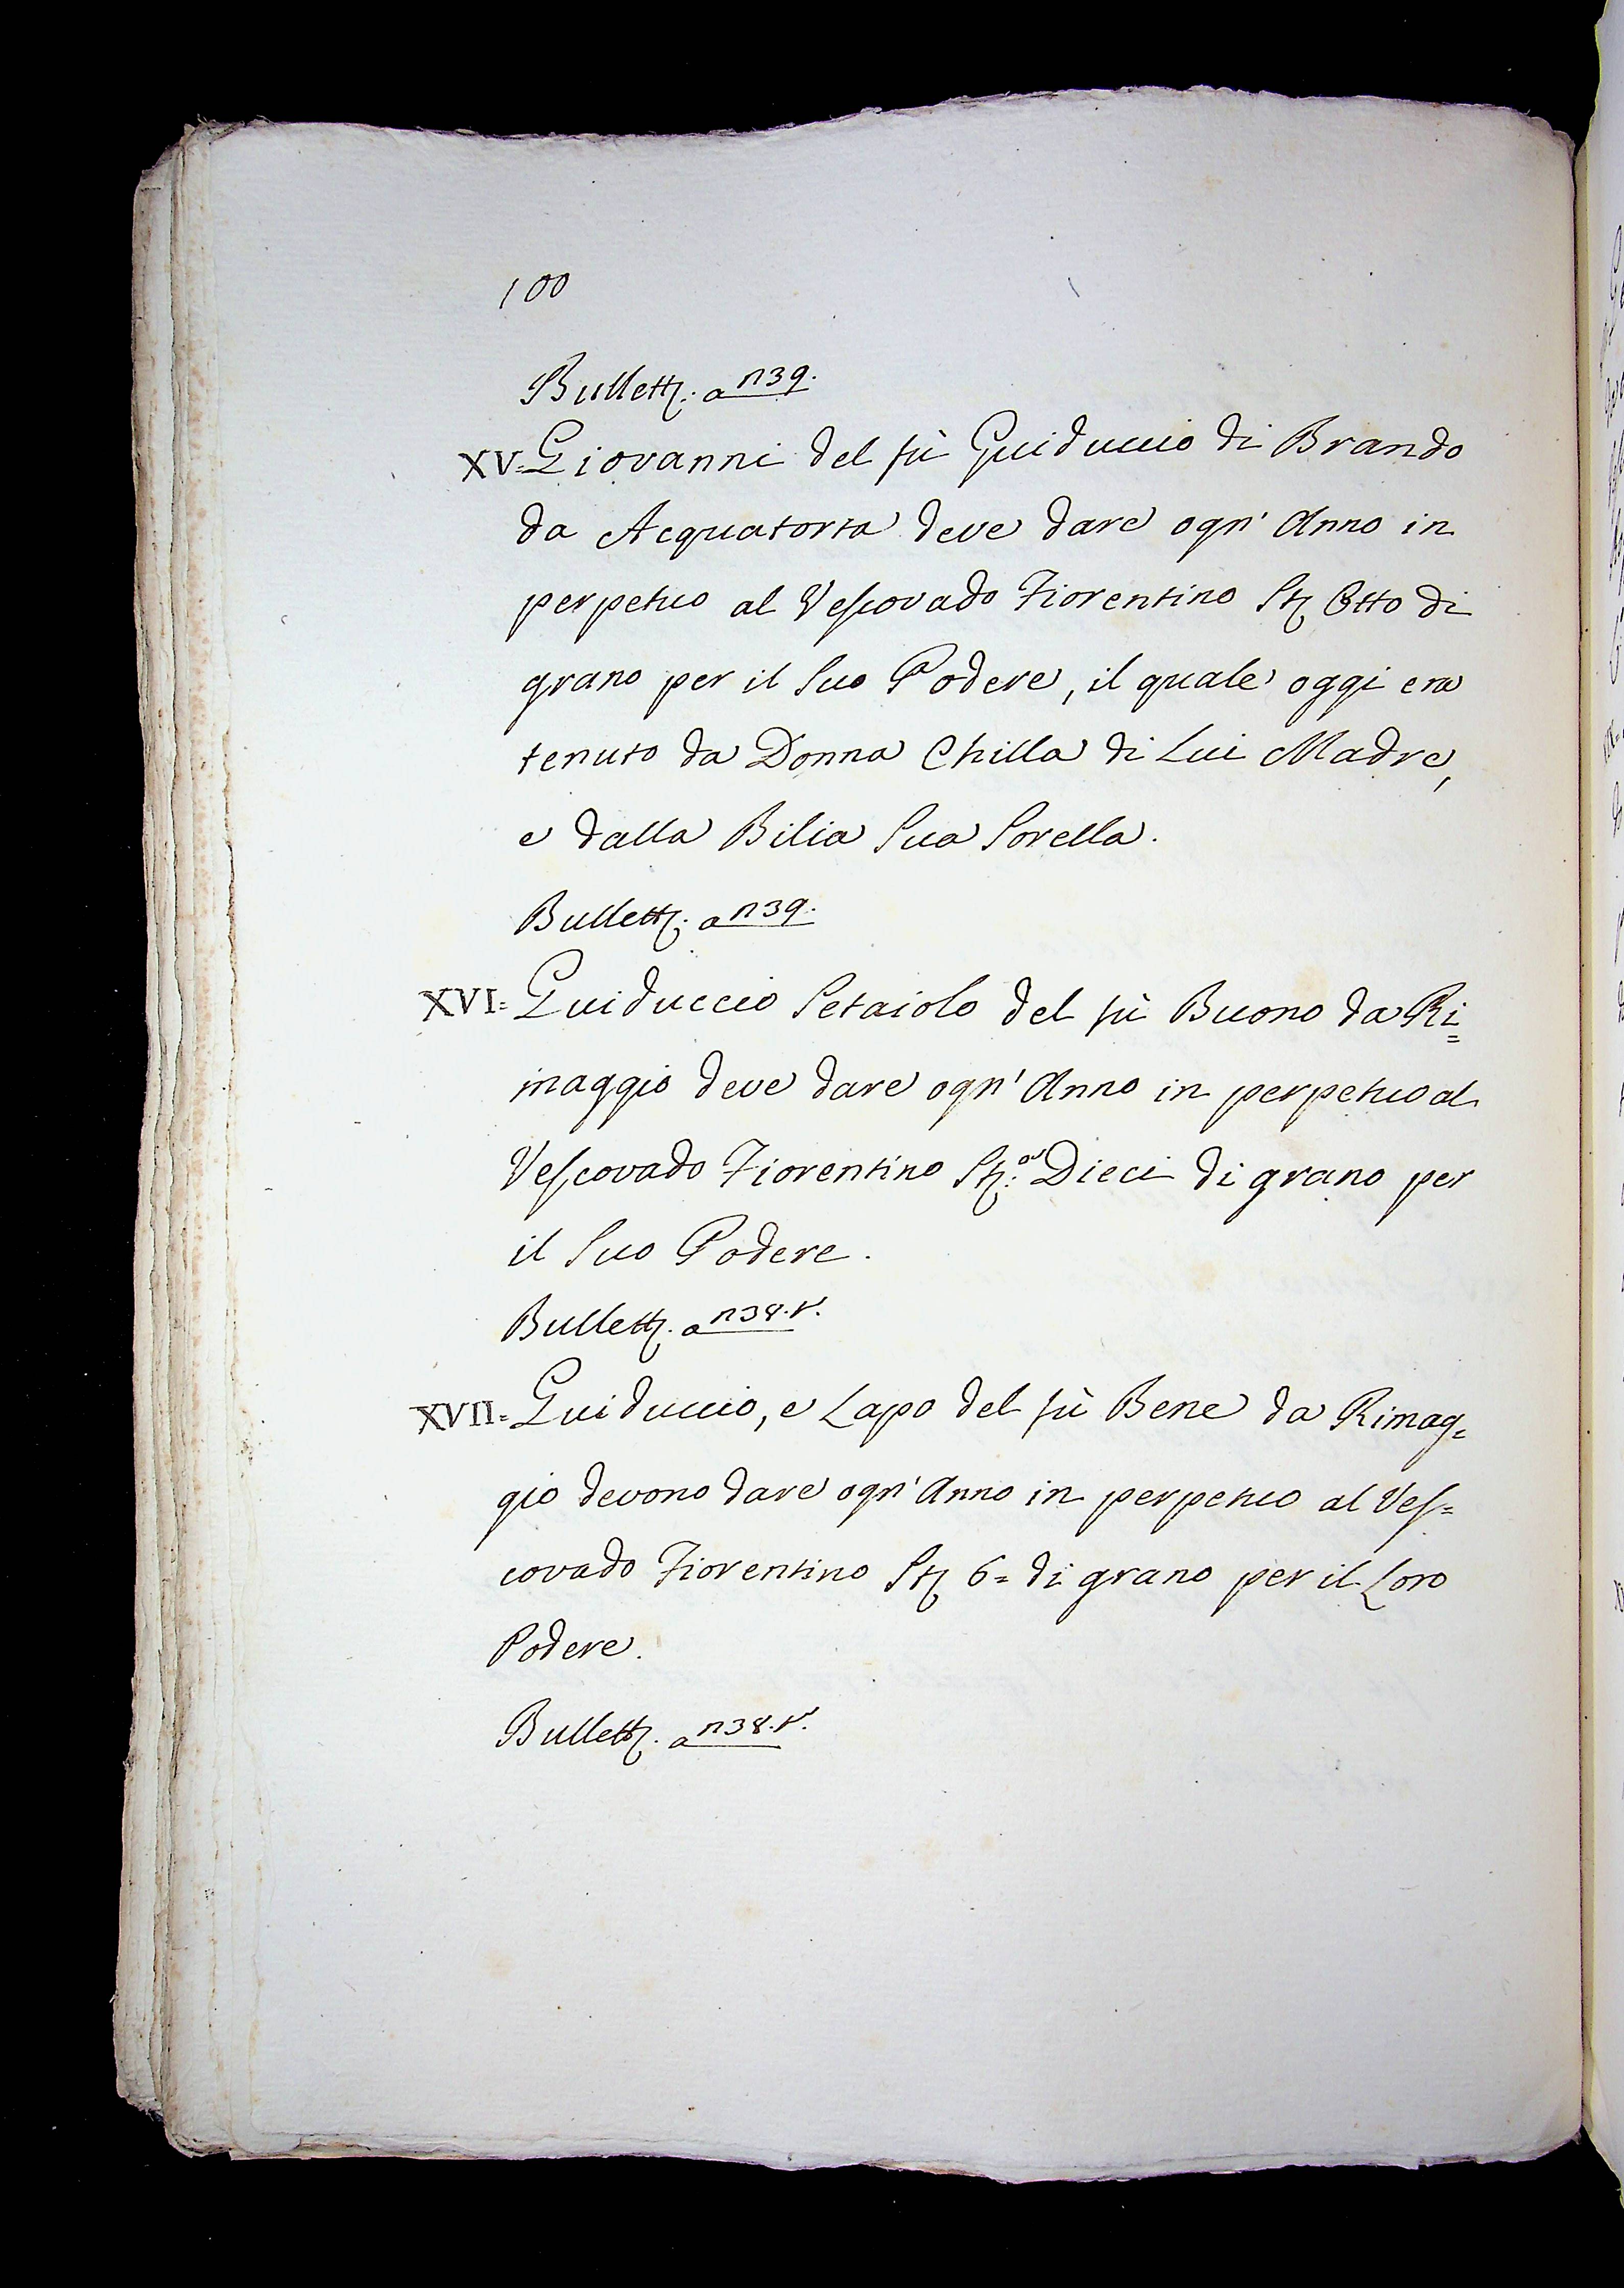 100
Bullett. a n39.
XV= Giovanni del fù Guiduccio di Brando
da Acquatorta deve dare ogn' Anno in
perpetuo al Vescovado Fiorentino St. Otto di
grano per il Suo Podere, il quale oggi era
tenuto da Donna Chilla di Lui Madre,
e dalla Bilia Sua Sorella.
Bullett. a n39.
XVI= Guiduccio Setaiolo del fù Buono da Ri=
maggio deve dare ogn' Anno in perpetuo al
Vescovado Fiorentino St.a Dieci di grano per
il Suo Podere.
Bullett. a n38.v.
XVII= Guiduccio, e Lapo del fù Bene da Rimag=
gio devono dare ogn' Anno in perpetuo al Ves=
covado Fiorentino St. 6= di grano per il Loro
Podere.
Bullett. a n38.v.